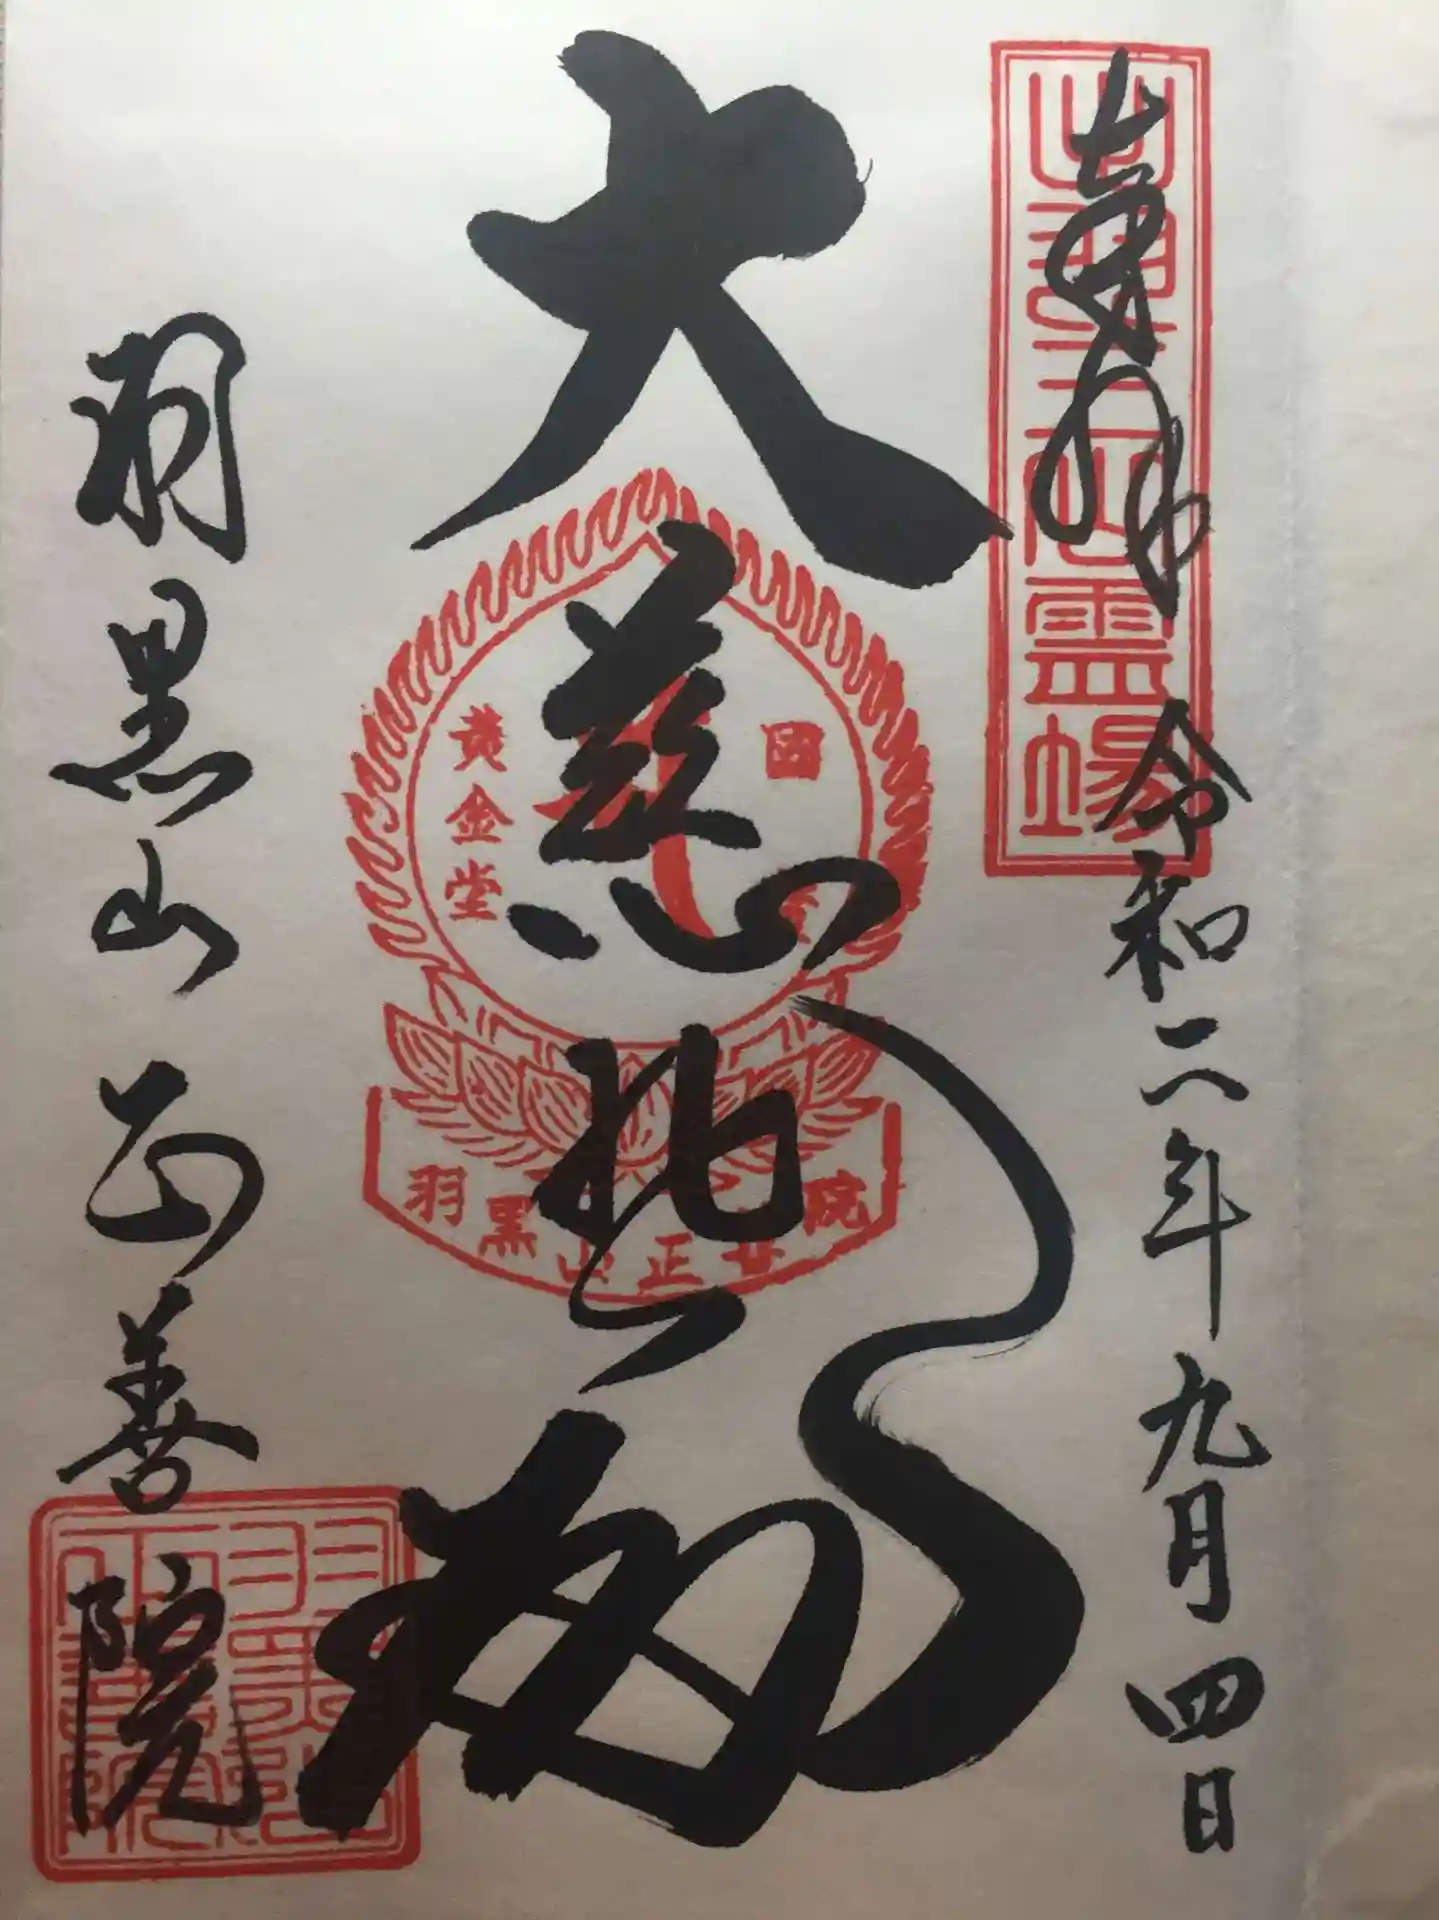 奉拝
令和二年九月四日
出羽三山霊場
大慈悲殿
國
黄金堂
羽黒山正善院
羽黒山正善院
羽黒山正善院